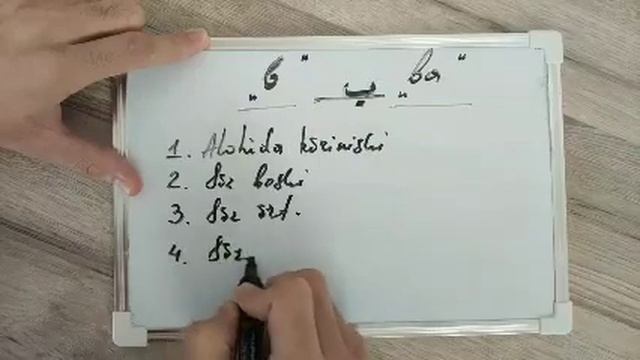 „b“ ب „ba“
1. Alohida ko'rinishi
2. So'z boshi
3. So'z o'rt.
4. So'z